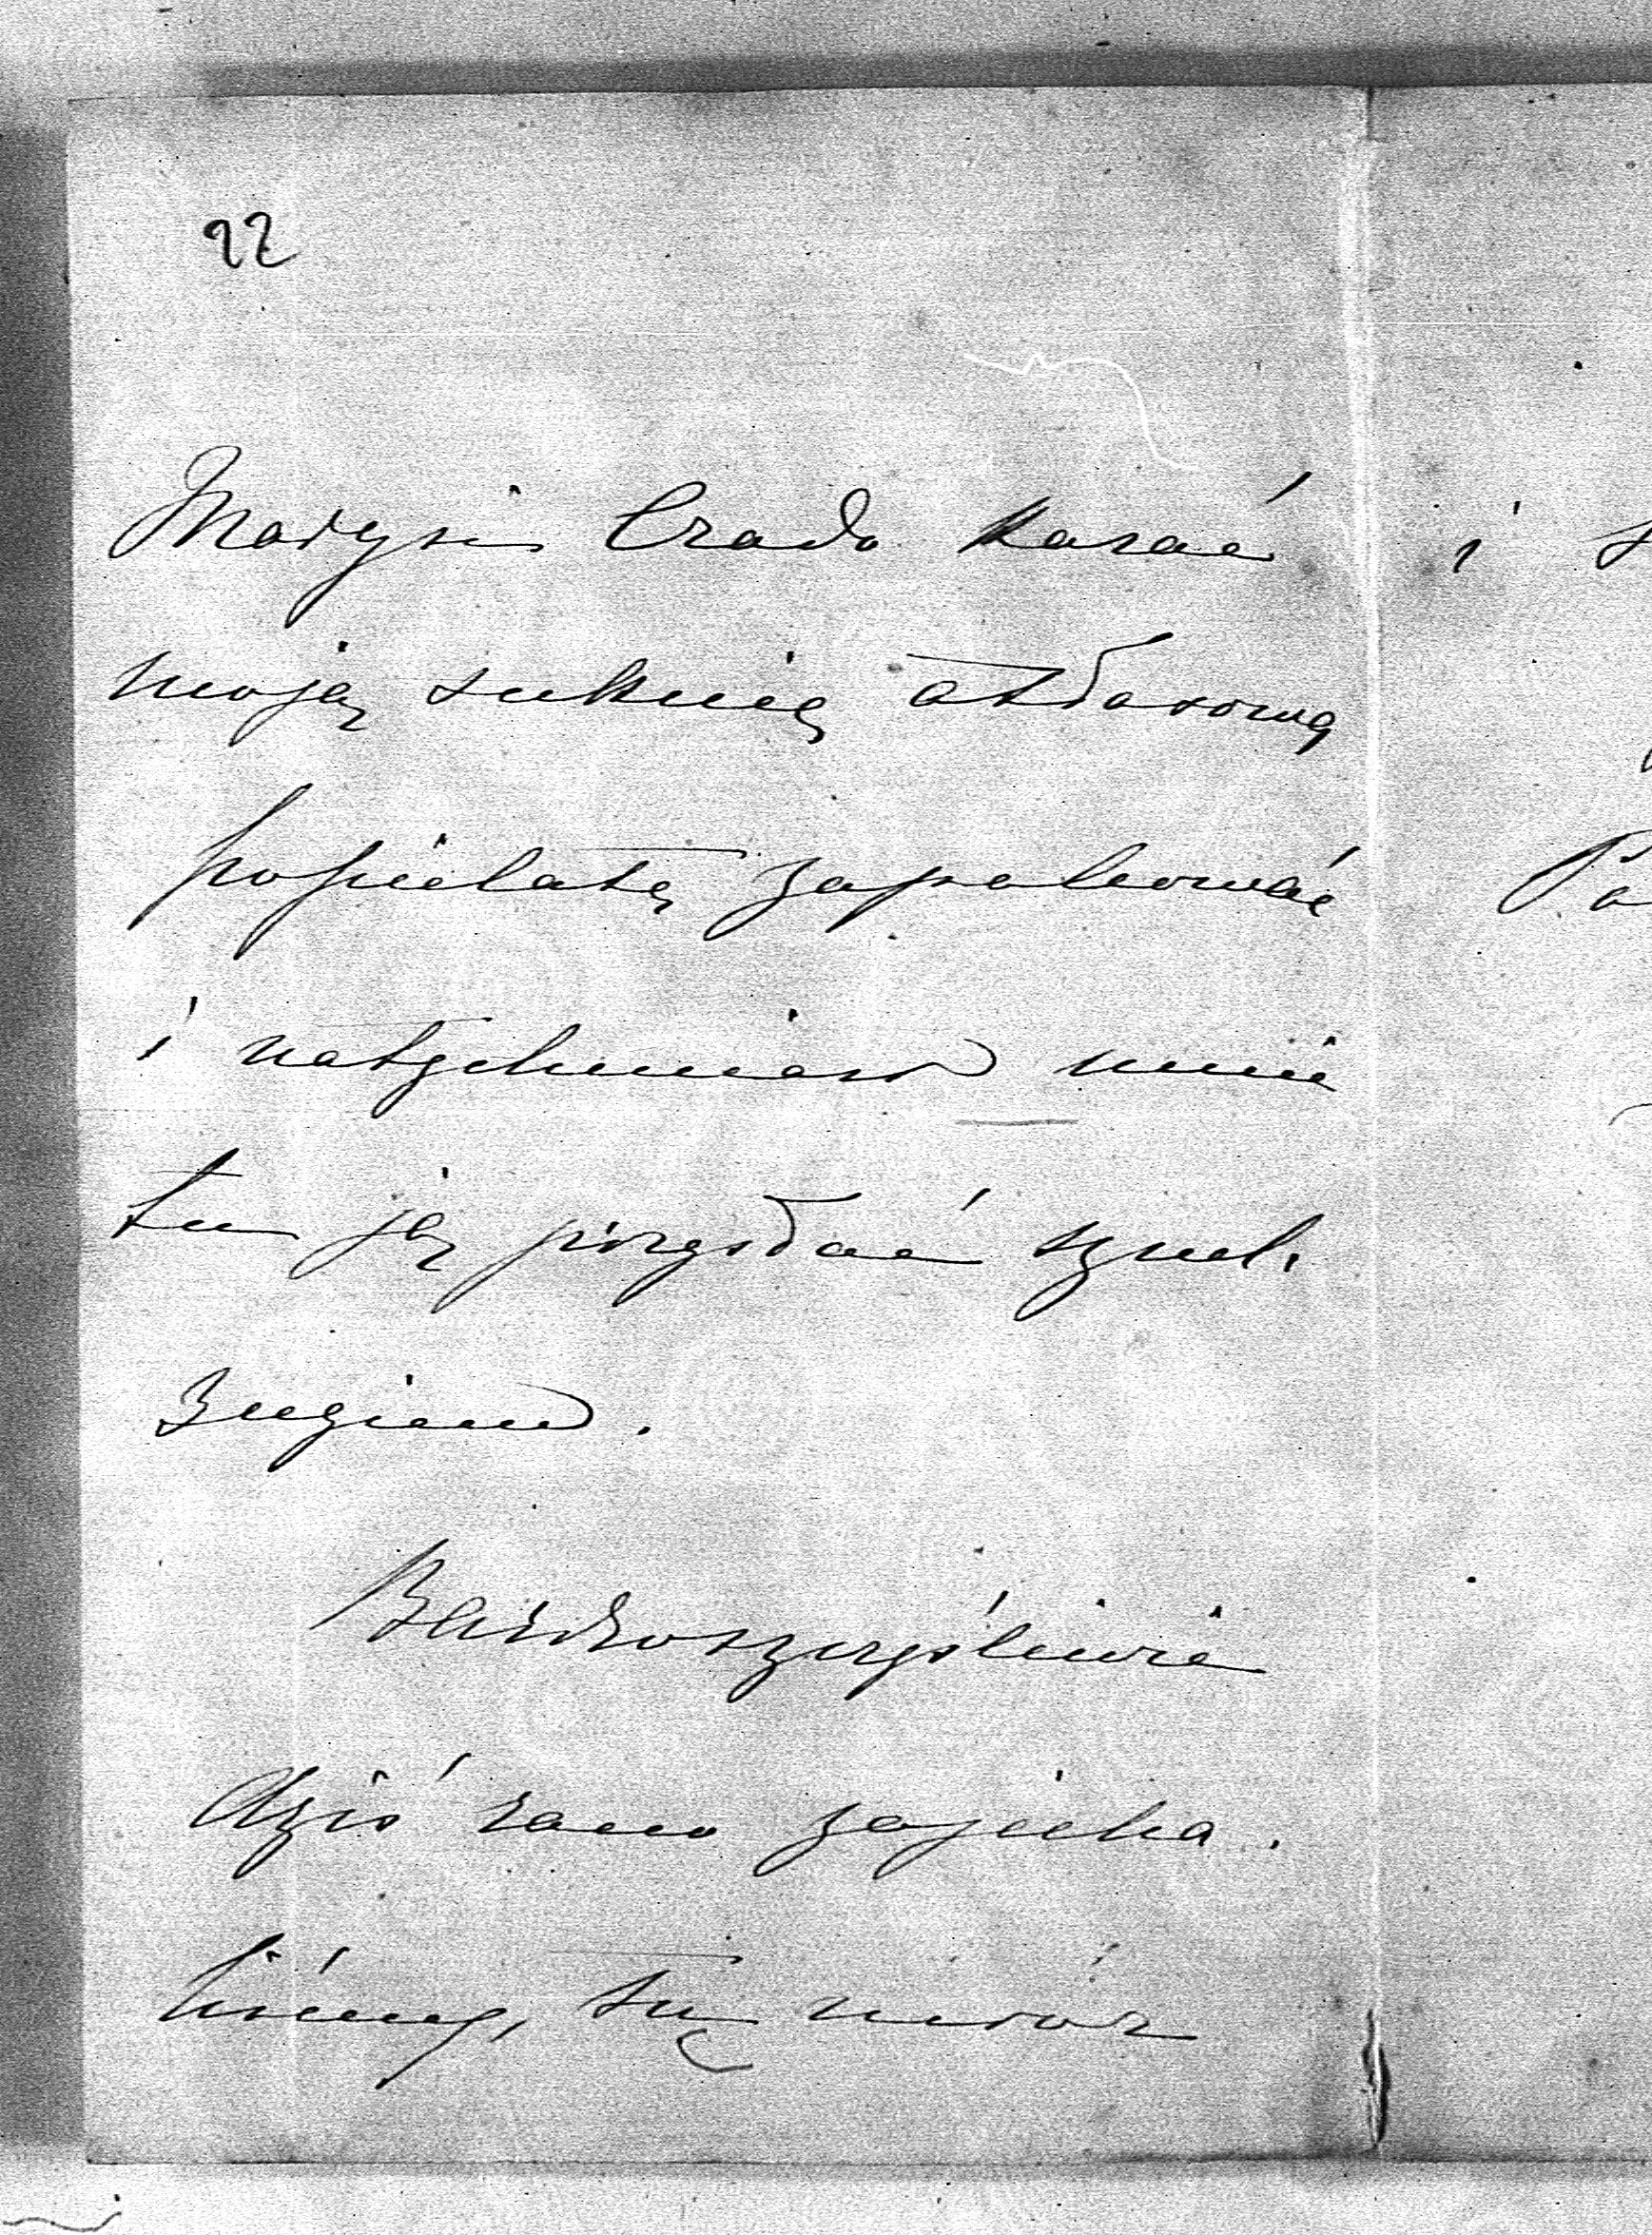 22
Marysi Czado kazać
moją suknię atłasową
popielatą zapakować
i natychmiast mnie
tu ją przysłać sznel.
zugiem.
Bardzo szczęśliwie
dziś rano zajecha.
liśmy, tu
i